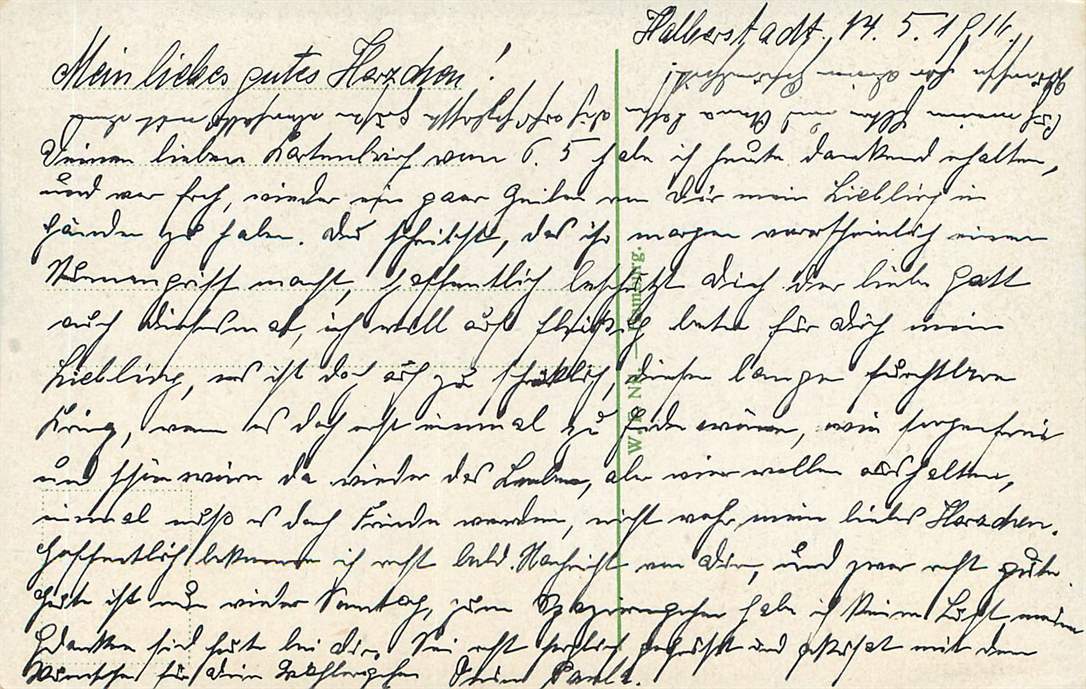 Halberstadt, 14. 5. 1916.
Mein liebes gutes Herzchen!
Deinen lieben Kartenbrief vom 6. 5 habe ich heute dankend erhalten,
und war froh, wieder ein paar Zeilen von Dir mein Liebling in
Händen zu haben. Du schreibst, das ihr morgen warscheinlich einen
Sturmangriff macht, hoffentlich beschützt Dich der liebe Gott
auch diesesmal, ich will auch fleißig beten für Dich mein
Liebling, es ist doch auch zu schreklich, diesen lange furchtbare
Krieg, wenn es doch erst einmal zu Ende wäre, wie sorgenfrei
und schön wäre da wieder das Leben, aber wier wollen aushalten,
einmal muß es doch Friede werden, nicht wahr, mein liebes Herzchen.
Hoffentlich bekomme ich recht bald Nachricht von Dir, und zwar recht gute.
Heute ist nun wieder Sonntag, zum Spazierengehen habe ich keine Lust, meine
Gedanken sind heute bei dir, Sei recht herzlich gegrüßt und geküsst mit den
Wünschen für dein Wohlergehen Deine Paula.
W.&N. Nr.